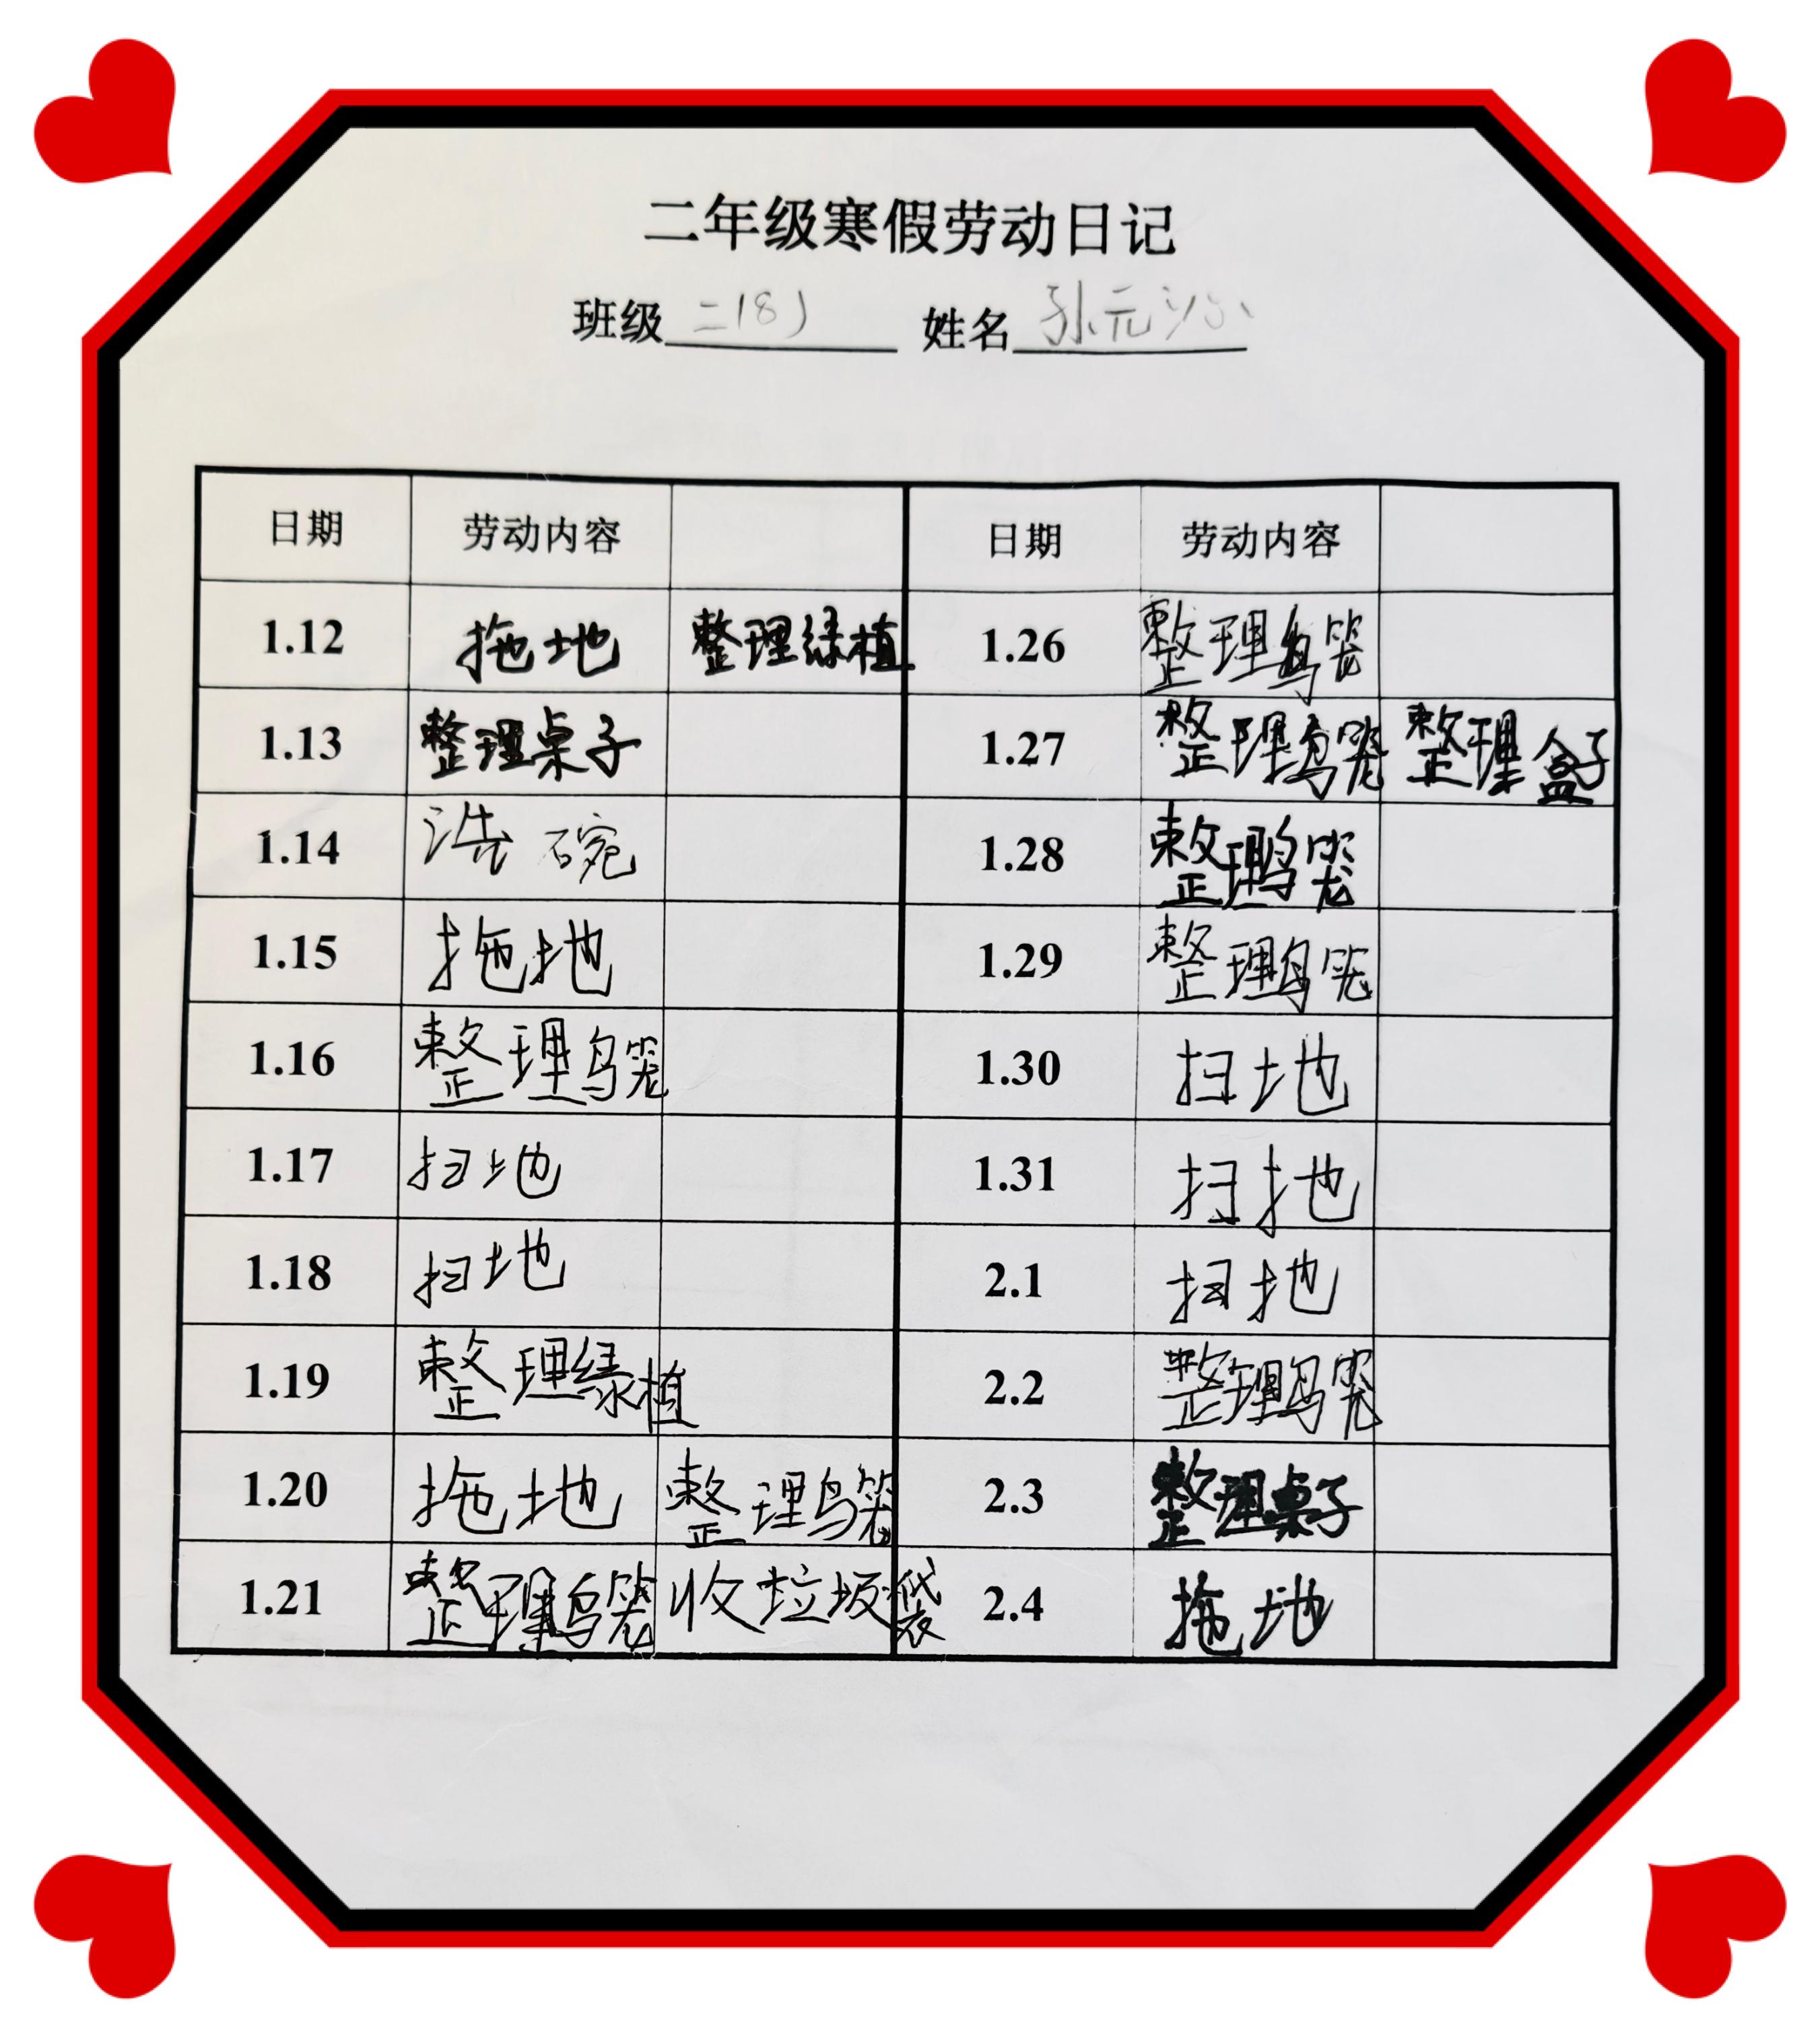 二年级寒假劳动日记
班级 二(8) 姓名 孙元
日期 劳动内容 日期 劳动内容
1.12 拖地 整理绿植 1.26 整理鸟笼
1.13 整理桌子 1.27 整理鸟笼 整理盒子
1.14 洗碗 1.28 整理鸟笼
1.15 拖地 1.29 整理鸟笼
1.16 整理鸟笼 1.30 扫地
1.17 扫地 1.31 扫地
1.18 扫地 2.1 扫地
1.19 整理绿植 2.2 整理鸟笼
1.20 拖地 整理鸟笼 2.3 整理桌子
1.21 整理鸟笼 收垃圾袋 2.4 拖地